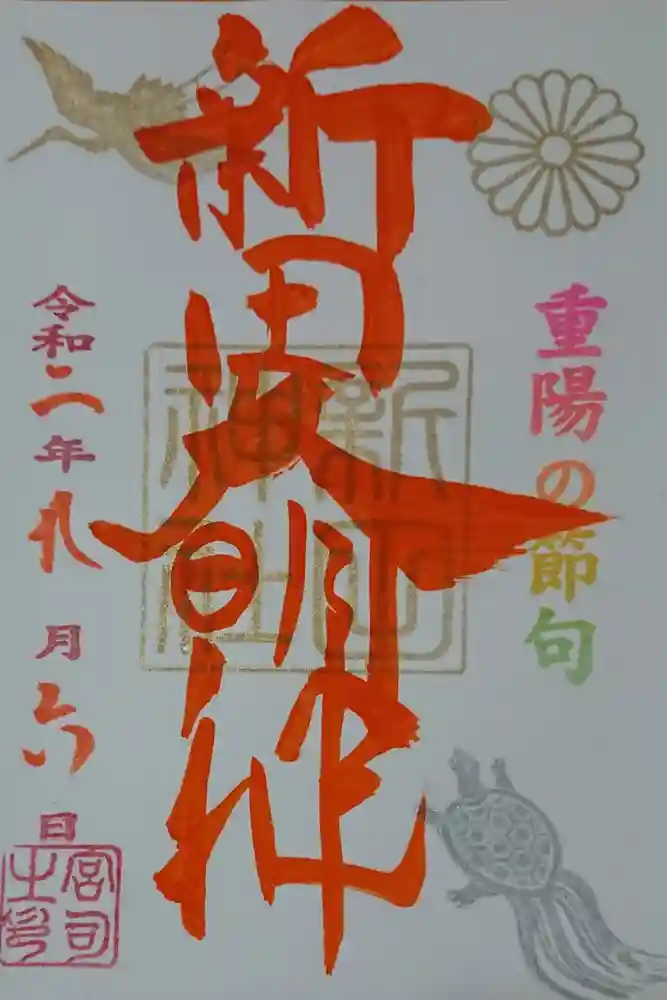 重陽の節句
新田大明神
新田神社
令和二年九月六日
宮司之印